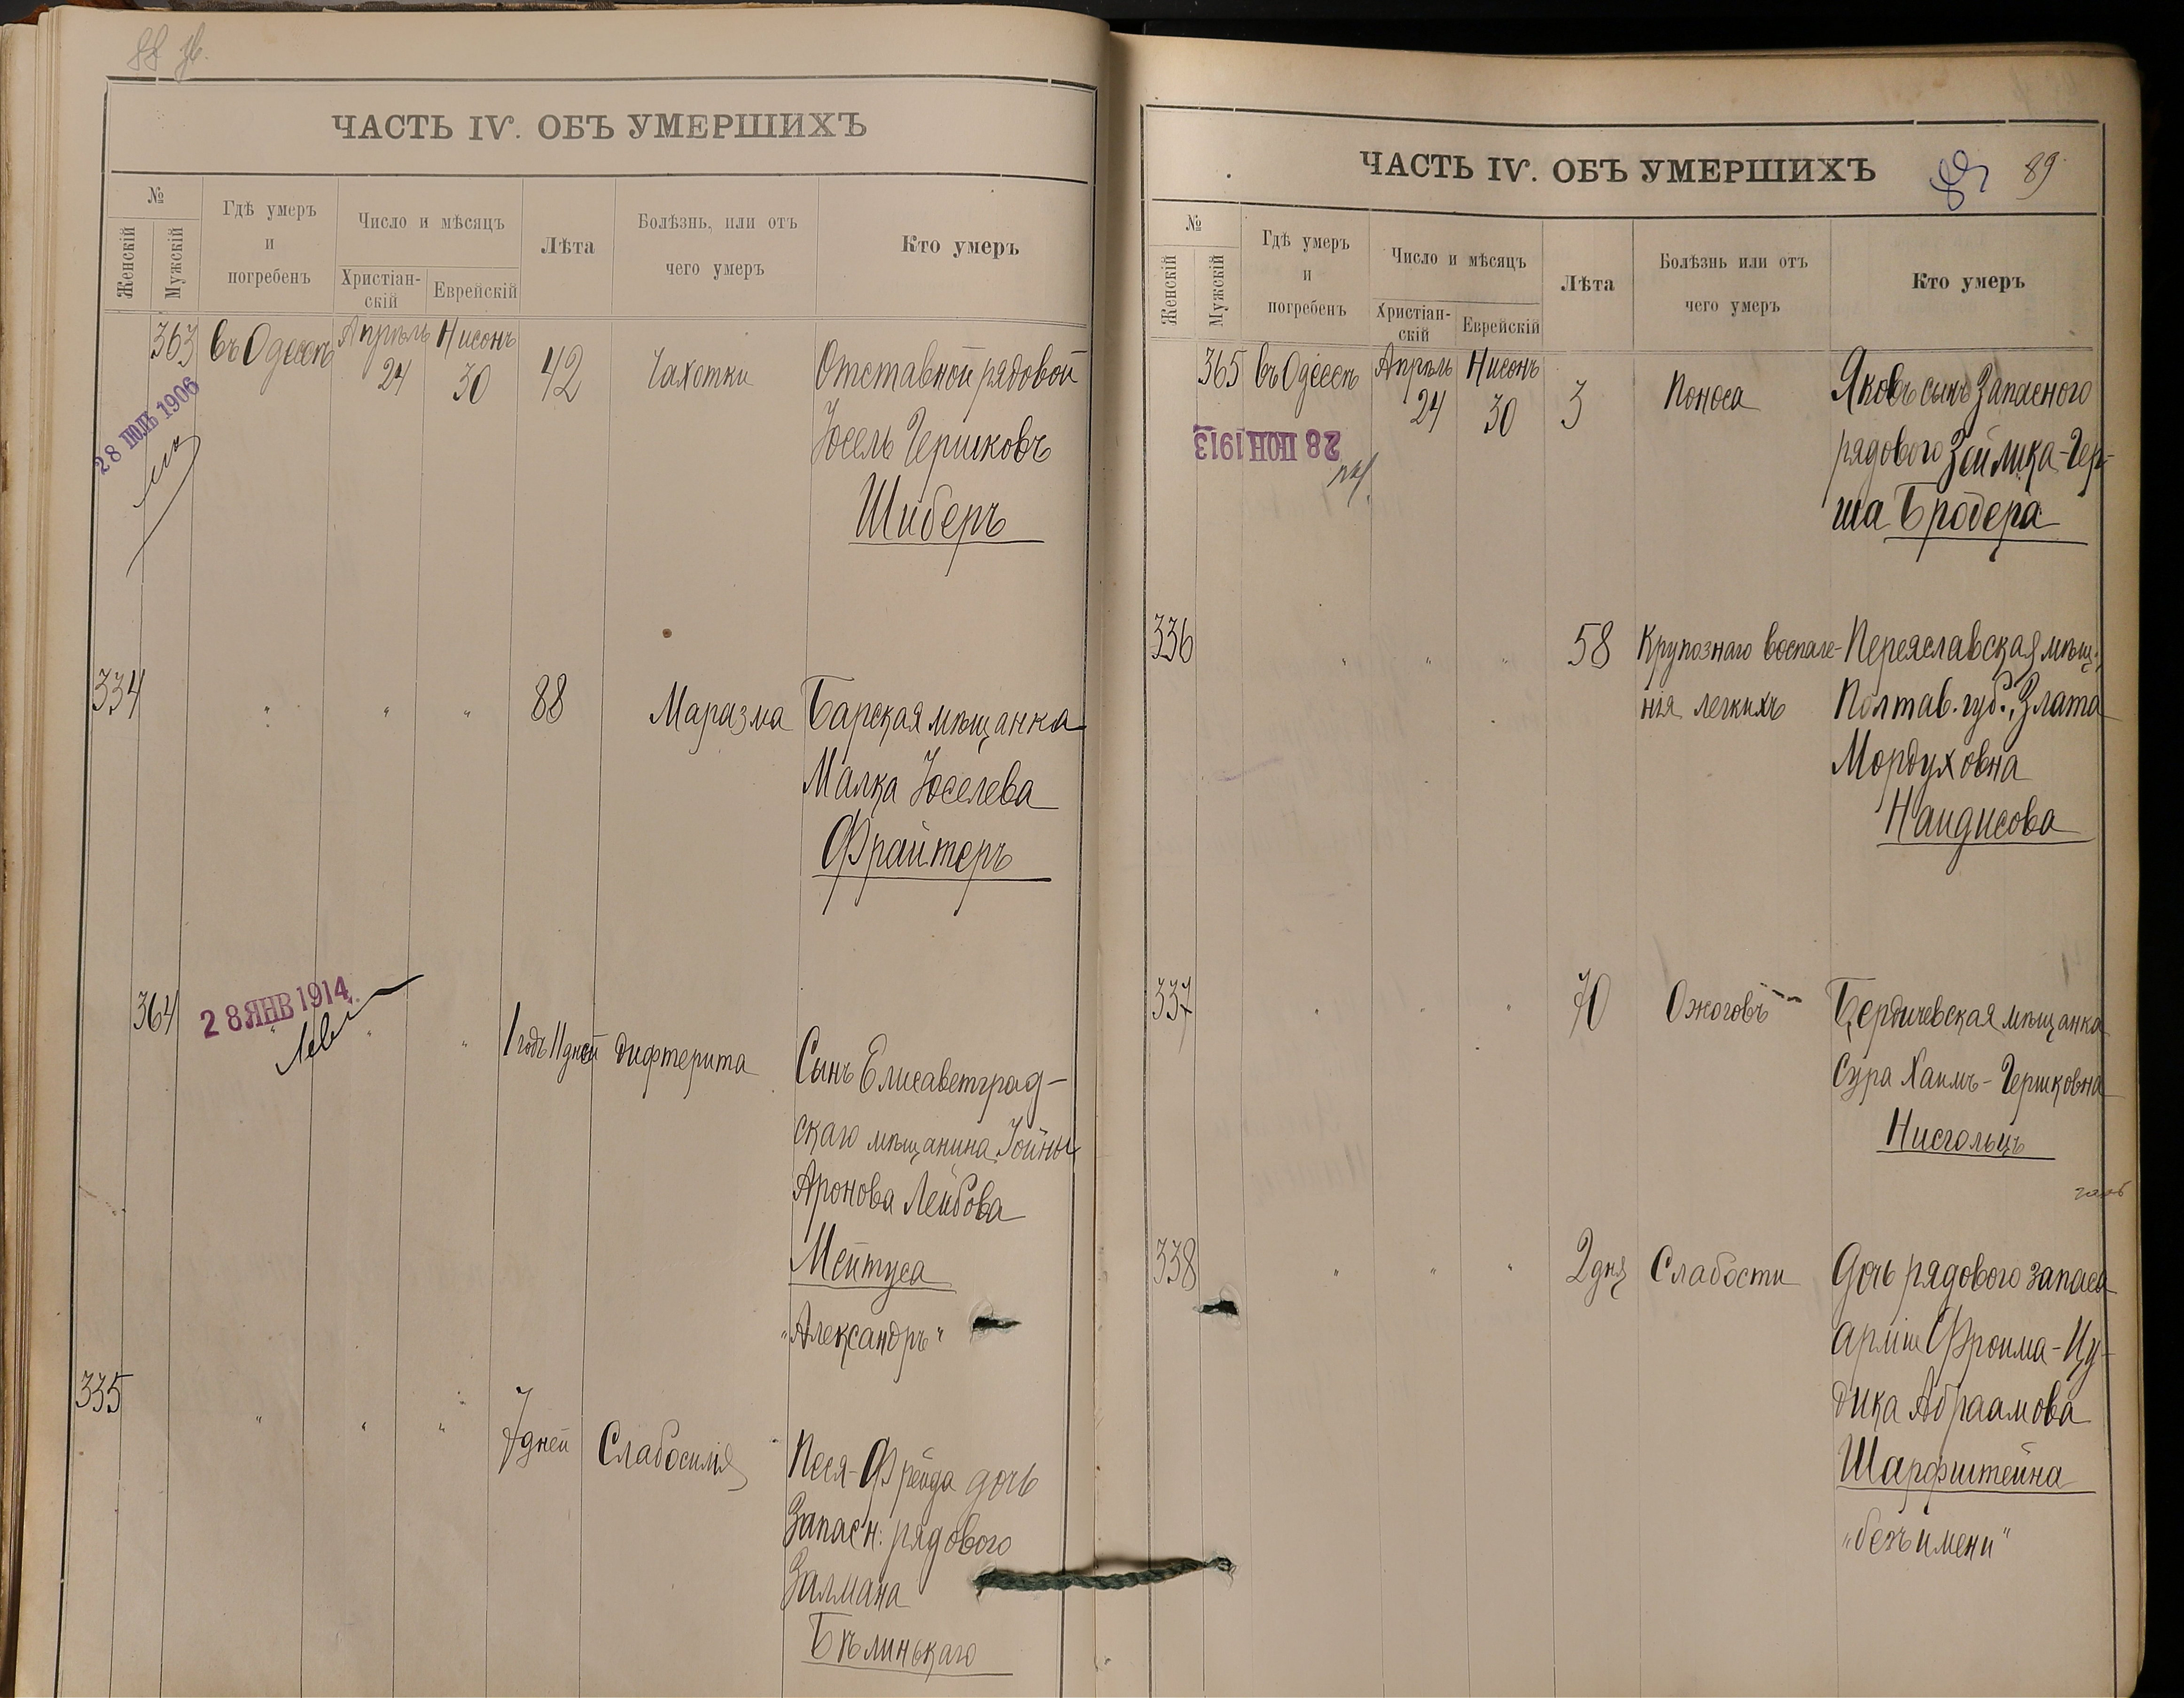 88 об.
ЧАСТЬ IV. ОБЪ УМЕРШИХЪ
№
Женскій
Мужскій
Гдѣ умеръ
и
погребенъ
Число и мѣсяцъ
Христіан-
скій
Еврейскій
Лѣта
Болѣзнь, или отъ
чего умеръ
Кто умеръ
363 въ Одессѣ Апрѣль 24 Нисонъ 30 42 Чахотки Отставной рядовой
28 ІЮЛЬ 1906
Іосель Гершковъ
Шиберъ
334 " " " 88 Маразма Барская мѣщанка
Малка Іоселева
Фрайтеръ
364 " " " 1 годъ 11 дней дифтерита Сынъ Елисаветград-
28 ЯНВ 1914
скаго мѣщанина Іойны
Аронова Лейбова
Мейтуса
"Александръ"
335 " " " 7 дней Слабосилія Песя-Фрейда дочь
Запасн: рядового
Залмана
Бѣлинькаго
ЧАСТЬ IV. ОБЪ УМЕРШИХЪ
89 89
№
Женскій
Мужскій
Гдѣ умеръ
и
погребенъ
Число и мѣсяцъ
Христіан-
скій
Еврейскій
Лѣта
Болѣзнь или отъ
чего умеръ
Кто умеръ
365 въ Одессѣ Апрѣль 24 Нисонъ 30 3 Поноса Яковъ сынъ Запасного
28 ІЮН 1913
рядового Зейлика-Гер-
ша Бродера
336 " " " 58 Крупознаго воспале- Переяславская мѣщ.,
нія легкихъ Полтав. губ., Злата
Мордуховна
Найдисова
337 " " " 70 Ожоговъ Бердичевская мѣщанка
Сура Хаимъ-Гершковна
Нисгольцъ
338 " " " 2 дня Слабости Дочь рядового запаса
арміи Фроима-Иу-
дика Абраамова
Шарфштейна
"безъ имени"